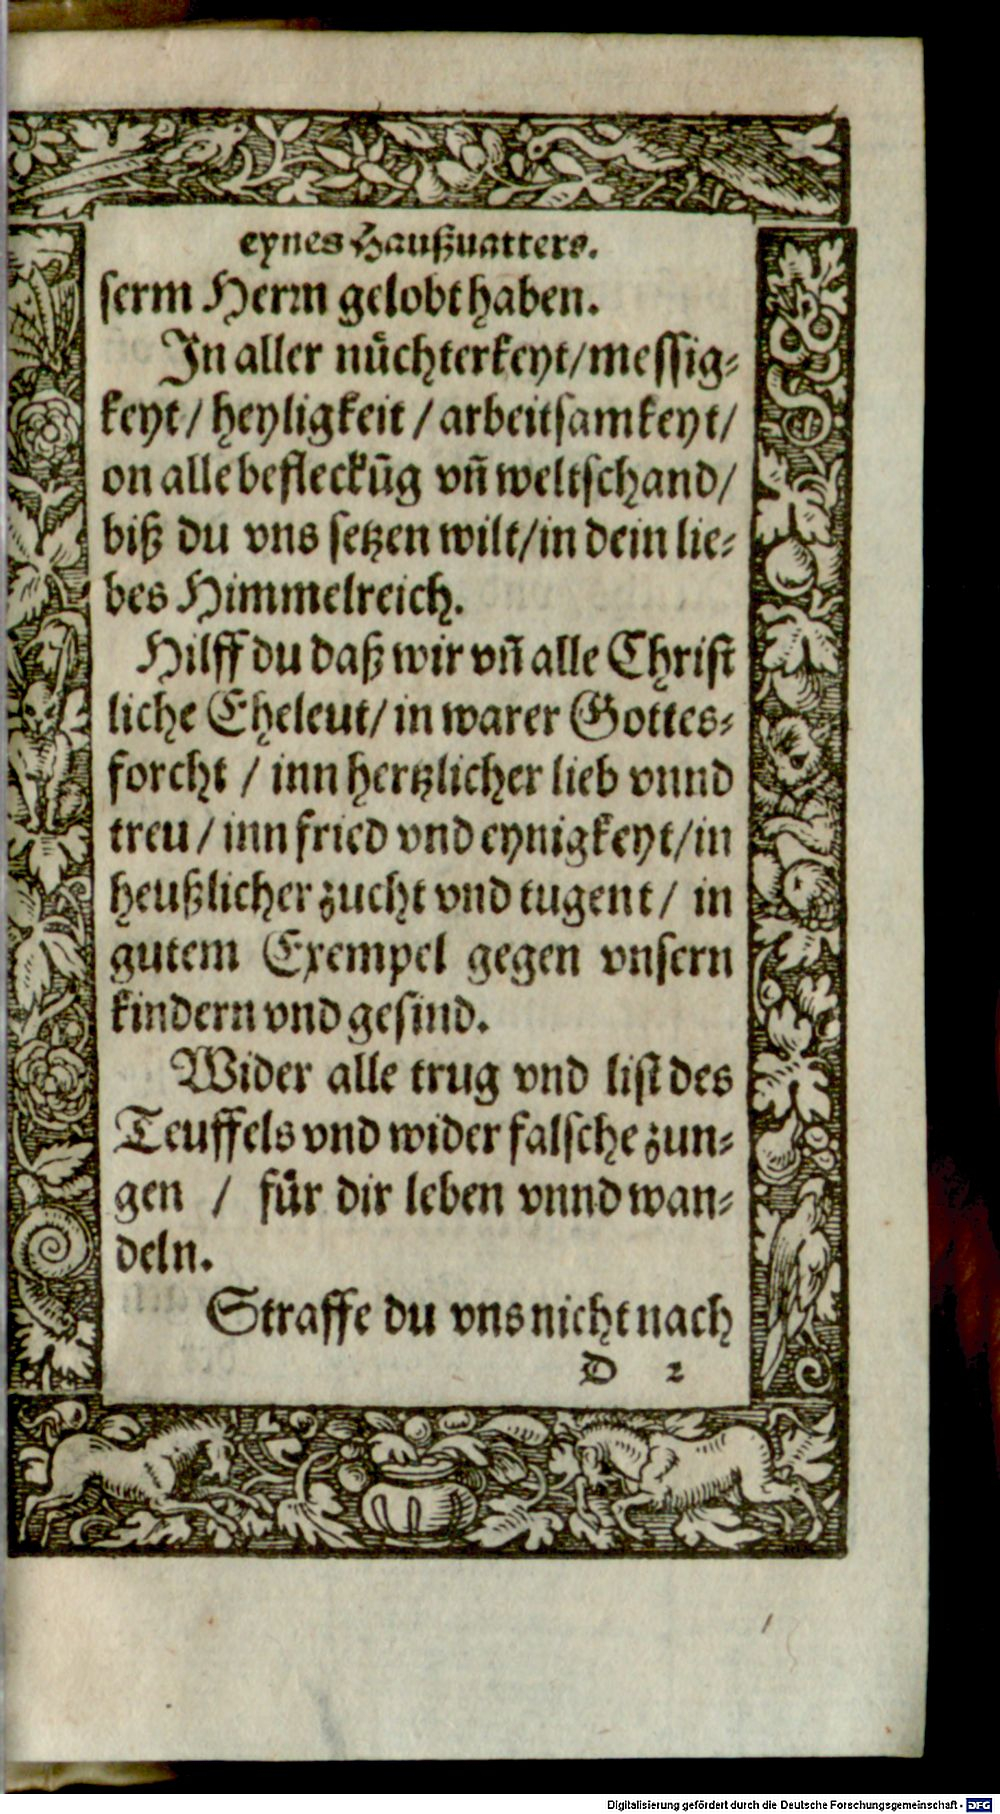 eynes Haußuatters.
serm Herrn gelobt haben.
In aller nůchterkeyt/messig⸗
keyt/ heyligkeit / arbeitsamkeyt/
on alle befleckūg vñ weltschand/
biß du vns setzen wilt/in dein lie⸗
bes Himmelreich.
Hilff du daß wir vñ alle Christ
liche Eheleut/ in warer Gottes⸗
forcht / inn hertzlicher lieb vnnd
treu / inn fried vnd eynigkeyt/in
heußlicher zucht vnd tugent/ in
gutem Exempel gegen vnsern
kindern vnd gesind.
Wider alle trug vnd list des
Teuffels vnd wider falsche zun⸗
gen / für dir leben vnnd wan⸗
deln.
Straffe du vns nicht nach
D 2
Digitalisierung gefördert durch die Deutsche Forschungsgemeinschaft - DFG